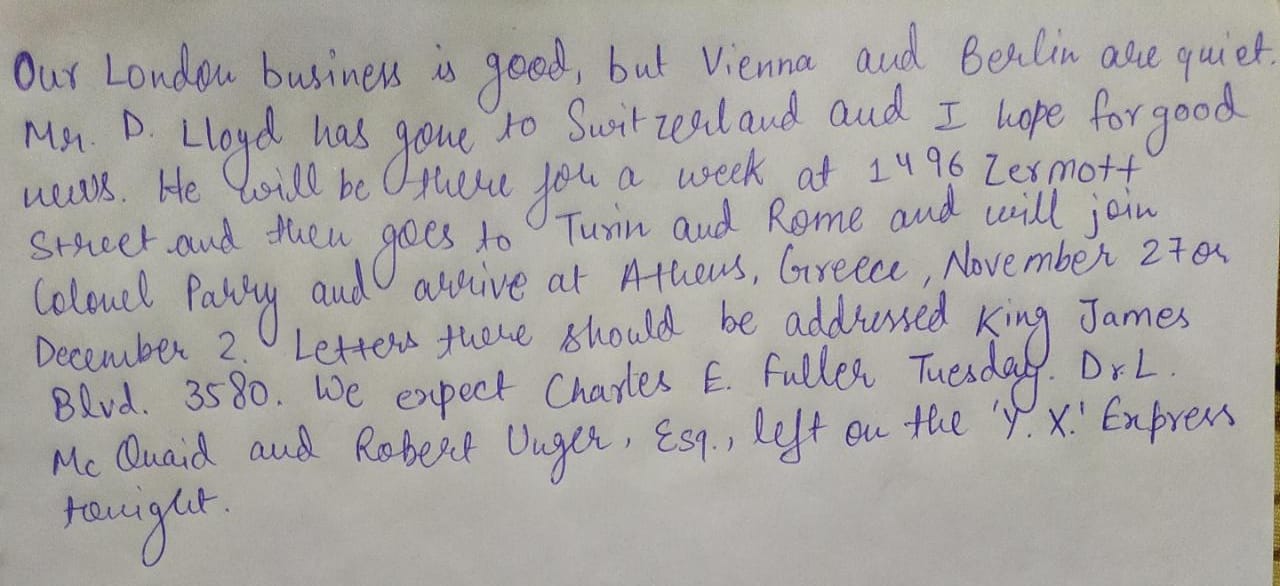 Our London business is good, but Vienna and Berlin are quiet.
Mr. D. Lloyd has gone to Switzerland and I hope for good
news. He will be there for a week at 1496 Zermott
Street and then goes to Turin and Rome and will join
Colonel Parry and arrive at Athens, Greece, November 27 or
December 2. Letters there should be addressed King James
Blvd. 3580. We expect Charles E. Fuller Tuesday. Dr. L.
Mc Quaid and Robert Unger, Esq., left on the 'Y. X.' Express
tonight.